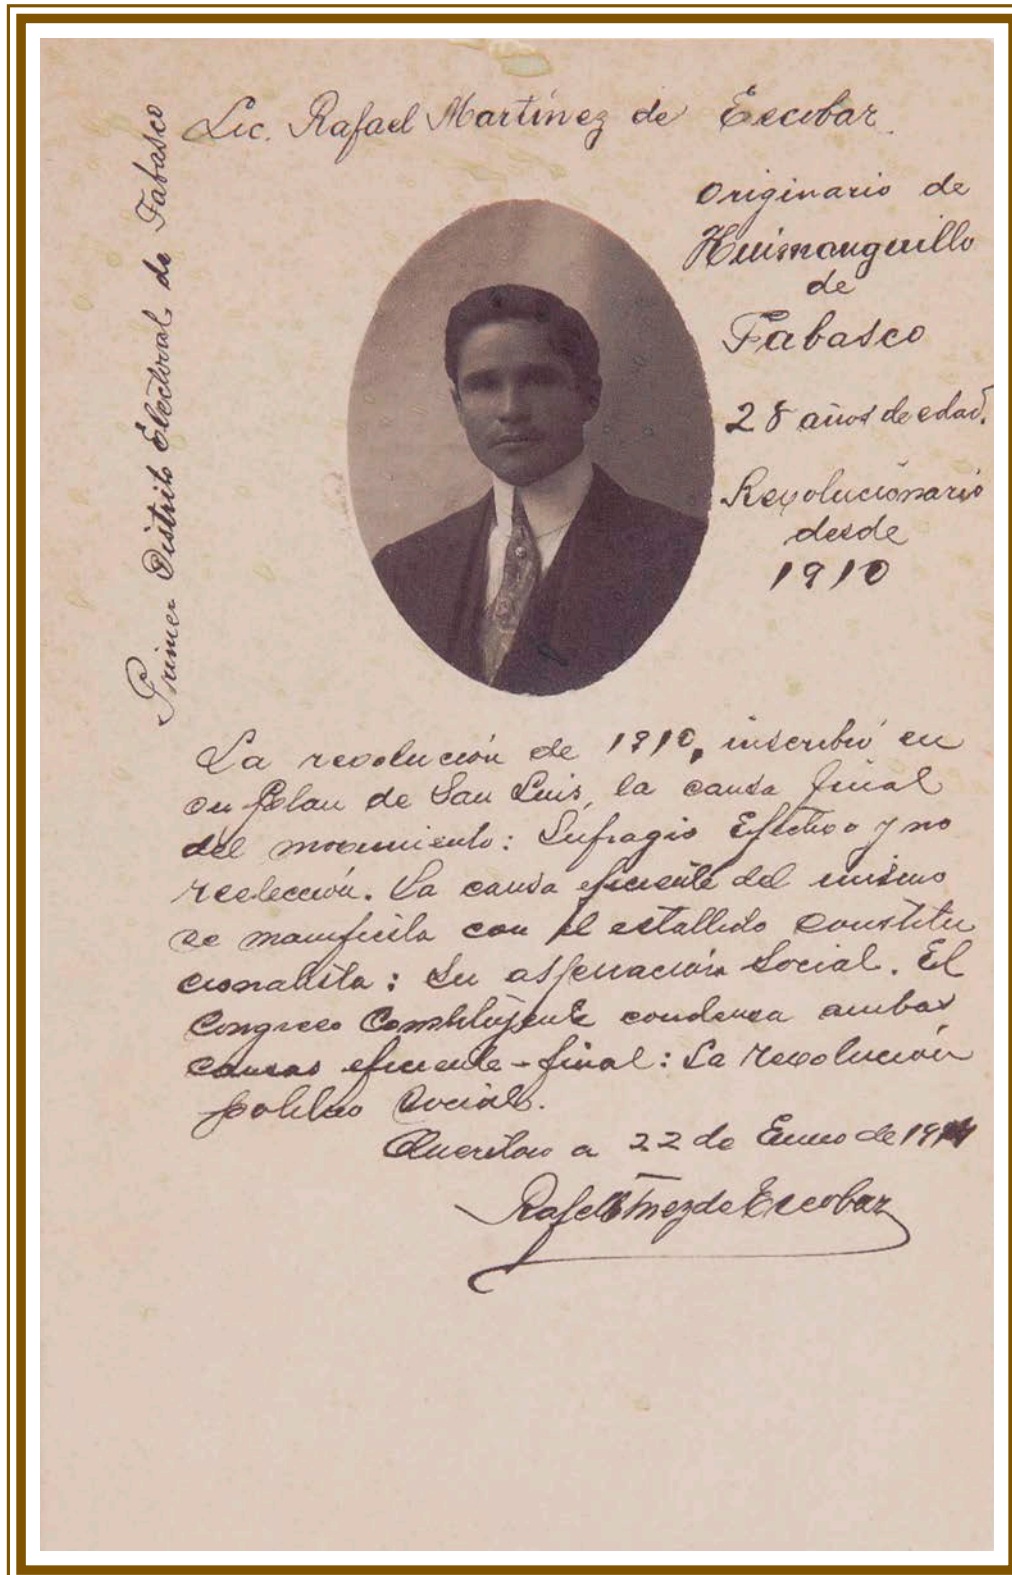 Lic. Rafael Martínez de Escobar.
Primer Distrito Electoral de Tabasco
Originario de
Huimanguillo
de
Tabasco
28 años de edad.
Revolucionario
desde
1910
La revolución de 1910, inscribió en
su plan de San Luis, la causa final
del movimiento: Sufragio Efectivo y no
reelección. La causa eficiente del mismo
se manifiesta con el estallido constitu
cionalista: su aspiración social. El
Congreso Constituyente condensa ambas
causas eficiente-final: La revolución
político social.
Querétaro a 22 de Enero de
Rafael Mnez de Escobar